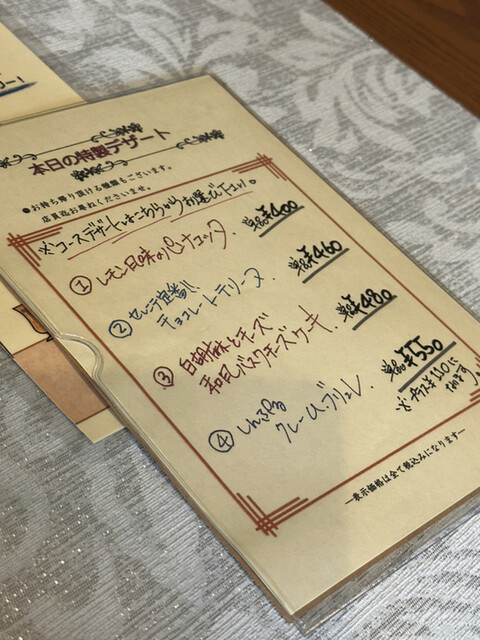 ー!
本日の特製デザート
●お持ち帰り頂ける種類もございます。
店員迄お尋ねくださいませ。
※コースデザートはこちらからお選び下さい。
① レモン風味のパンナコッタ. 単品¥400
② 定番!!
チョコレートテリーヌ. 単品¥460
③ 白胡麻とチーズ
和風バスクチーズケーキ. 単品¥480
④ しんぷる
クレームブリュレ. 単品¥550
※プラス¥110に
なります
―表示価格は全て税込みになります―